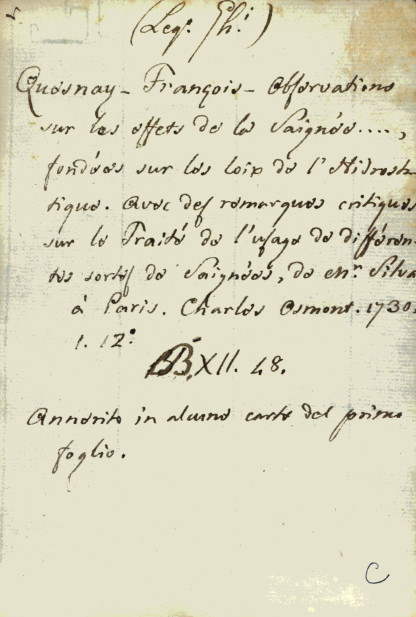 (Leg. Ghi)
Quesnay - François - Observations
sur les effets de la Saignée....,
fondées sur les loix de l'Hidrosta-
tique. avec des remarques critiques
sur le Traité de l'usage de différen-
tes sortes de Saignées, de Mr. Silva
à Paris. Charles Osmont. 1730.
1. 12º
BB. XII. 48.
Annerito in alcune carte del primo
foglio.
C